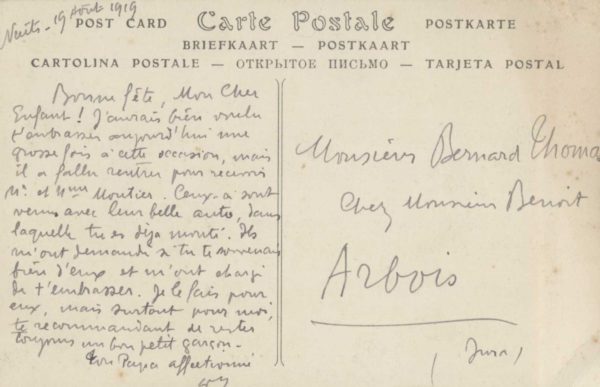 Nuits - 19 Août 1919
POST CARD Carte Postale POSTKARTE
BRIEFKAART — POSTKAART
CARTOLINA POSTALE — ОТКРЫТОЕ ПИСЬМО — TARJETA POSTAL
Bonne fête, Mon Cher
Enfant ! J'aurais bien voulu
t'embrasser aujourd'hui une
grosse fois à cette occasion, mais
il a fallu rentrer pour recevoir
Mr. et Mme Moutier. Ceux-ci sont
venus avec leur belle auto, dans
laquelle tu es déjà monté. Ils
m'ont demandé si tu te souvenais
bien d'eux et m'ont chargé
de t'embrasser. Je le fais pour
eux, mais surtout pour moi,
te recommandant de rester
toujours un bon petit garçon.
Ton Papa affectionné
Monsieur Bernard Thomas
Chez Monsieur Benoit
Arbois
(Jura)